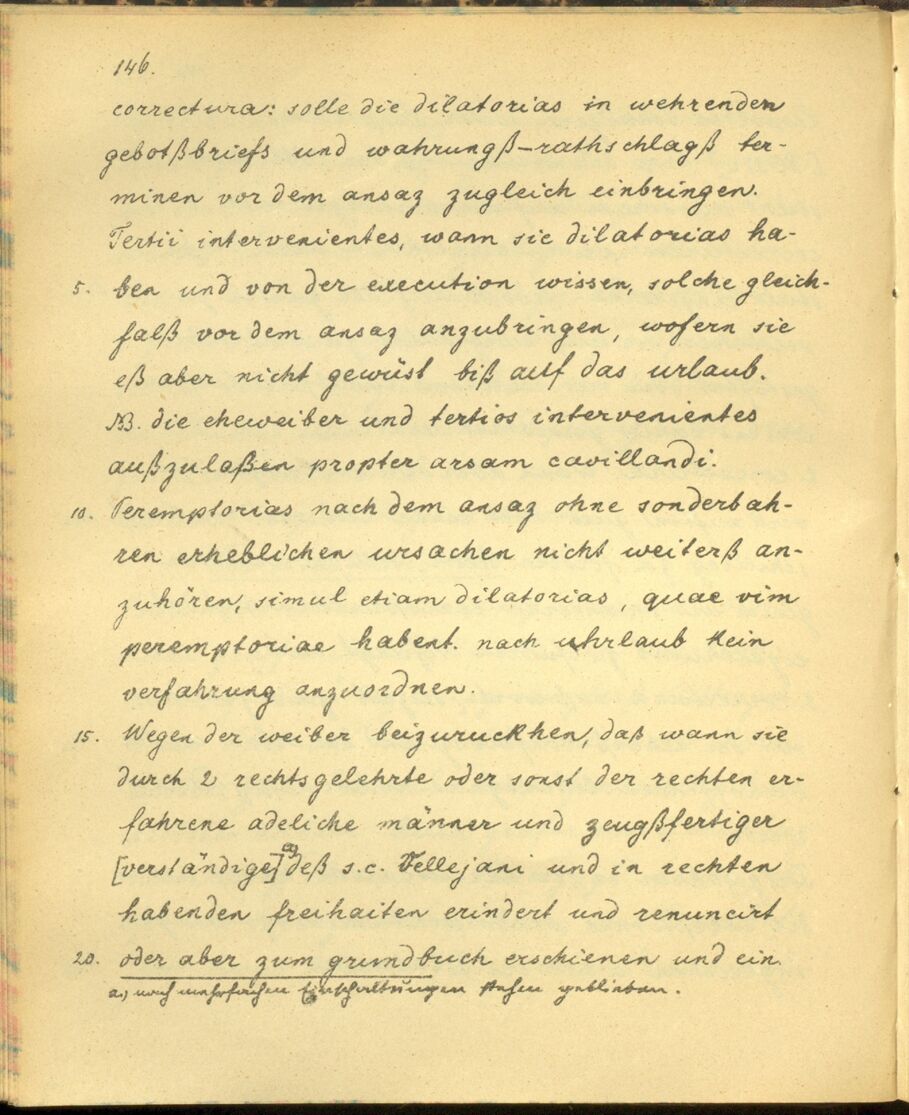 146.
correctura: solle die dilatorias in wehrenden
gebotßbriefs und wahrungß-rathschlagß ter-
minen vor dem ansaz zugleich einbringen.
Tertii intervenientes, wann sie dilatorias ha-
5. ben und von der execution wissen, solche gleich-
falß vor dem ansaz anzubringen, wofern sie
eß aber nicht gewüst biß auf das urlaub.
NB. die eheweiber und tertios intervenientes
außzulaßen propter arsam cavillandi.
10. Peremptorias nach dem ansaz ohne sonderbah-
ren erheblichen ursachen nicht weiterß an-
zuhören, simul etiam dilatorias, quae vim
peremptoriae habent. nach uhrlaub kein
verfahrung anzuordnen.
15. Wegen der weiber beizuruckhen, daß wann sie
durch 2 rechtsgelehrte oder sonst der rechten er-
fahrene adeliche männer und zeugßfertiger
[verständige] a) deß s.c. Vellejani und in rechten
habenden freihaiten erindert und renuncirt
20. oder aber zum grundbuch erschienen und ein
a.) nach mehrfachen Einschaltungen stehen geblieben.